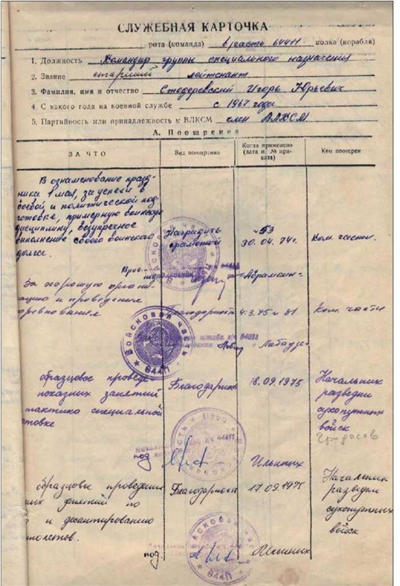 СЛУЖЕБНАЯ КАРТОЧКА
рота (команда) в/части 64411 полка (корабля)
1. Должность Командир группы специального назначения
2. Звание старший лейтенант
3. Фамилия, имя и отчество Стодеревский Игорь Юрьевич
4. С какого года на военной службе с 1967 года
5. Партийность или принадлежность к ВЛКСМ член ВЛКСМ
А. Поощрения
ЗА ЧТО
Вид поощрения
Когда применено (дата и № приказа)
Кем поощрен
В ознаменование праздника 1 мая, за успехи в
боевой и политической подготовке, примерную воинскую
дисциплину, безупречное
выполнение своего воинского
долга.
Наградить
грамотой
№53
30.04.74г.
Ком. части.
За хорошую организацию и проведение
соревнования
Благодарность
4.3.75 № 81
Ком. части
ВОЙСКОВАЯ ЧАСТЬ
64411
образцовое проведе
показных занятий
тактико специальной
товке
Благодарность
16.09.1975
Начальник
разведки
сухопутных
войск
под
Ильиных
образцовое проведение
ных занятий по
десантированию
Благодарность
17.09.1975
Начальник
разведки
сухопутных
войск
под.
64411